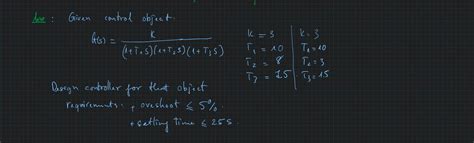 Given control object:
G(s) = K / ((1+T₁S)(1+T₂S)(1+T₃S))
K = 3
T₁ = 10
T₂ = 8
T₃ = 15
K = 3
T₁ = 10
T₂ = 3
T₃ = 15
Design controller for that object
requirements: + overshoot ≤ 5%
+ settling time ≤ 25s